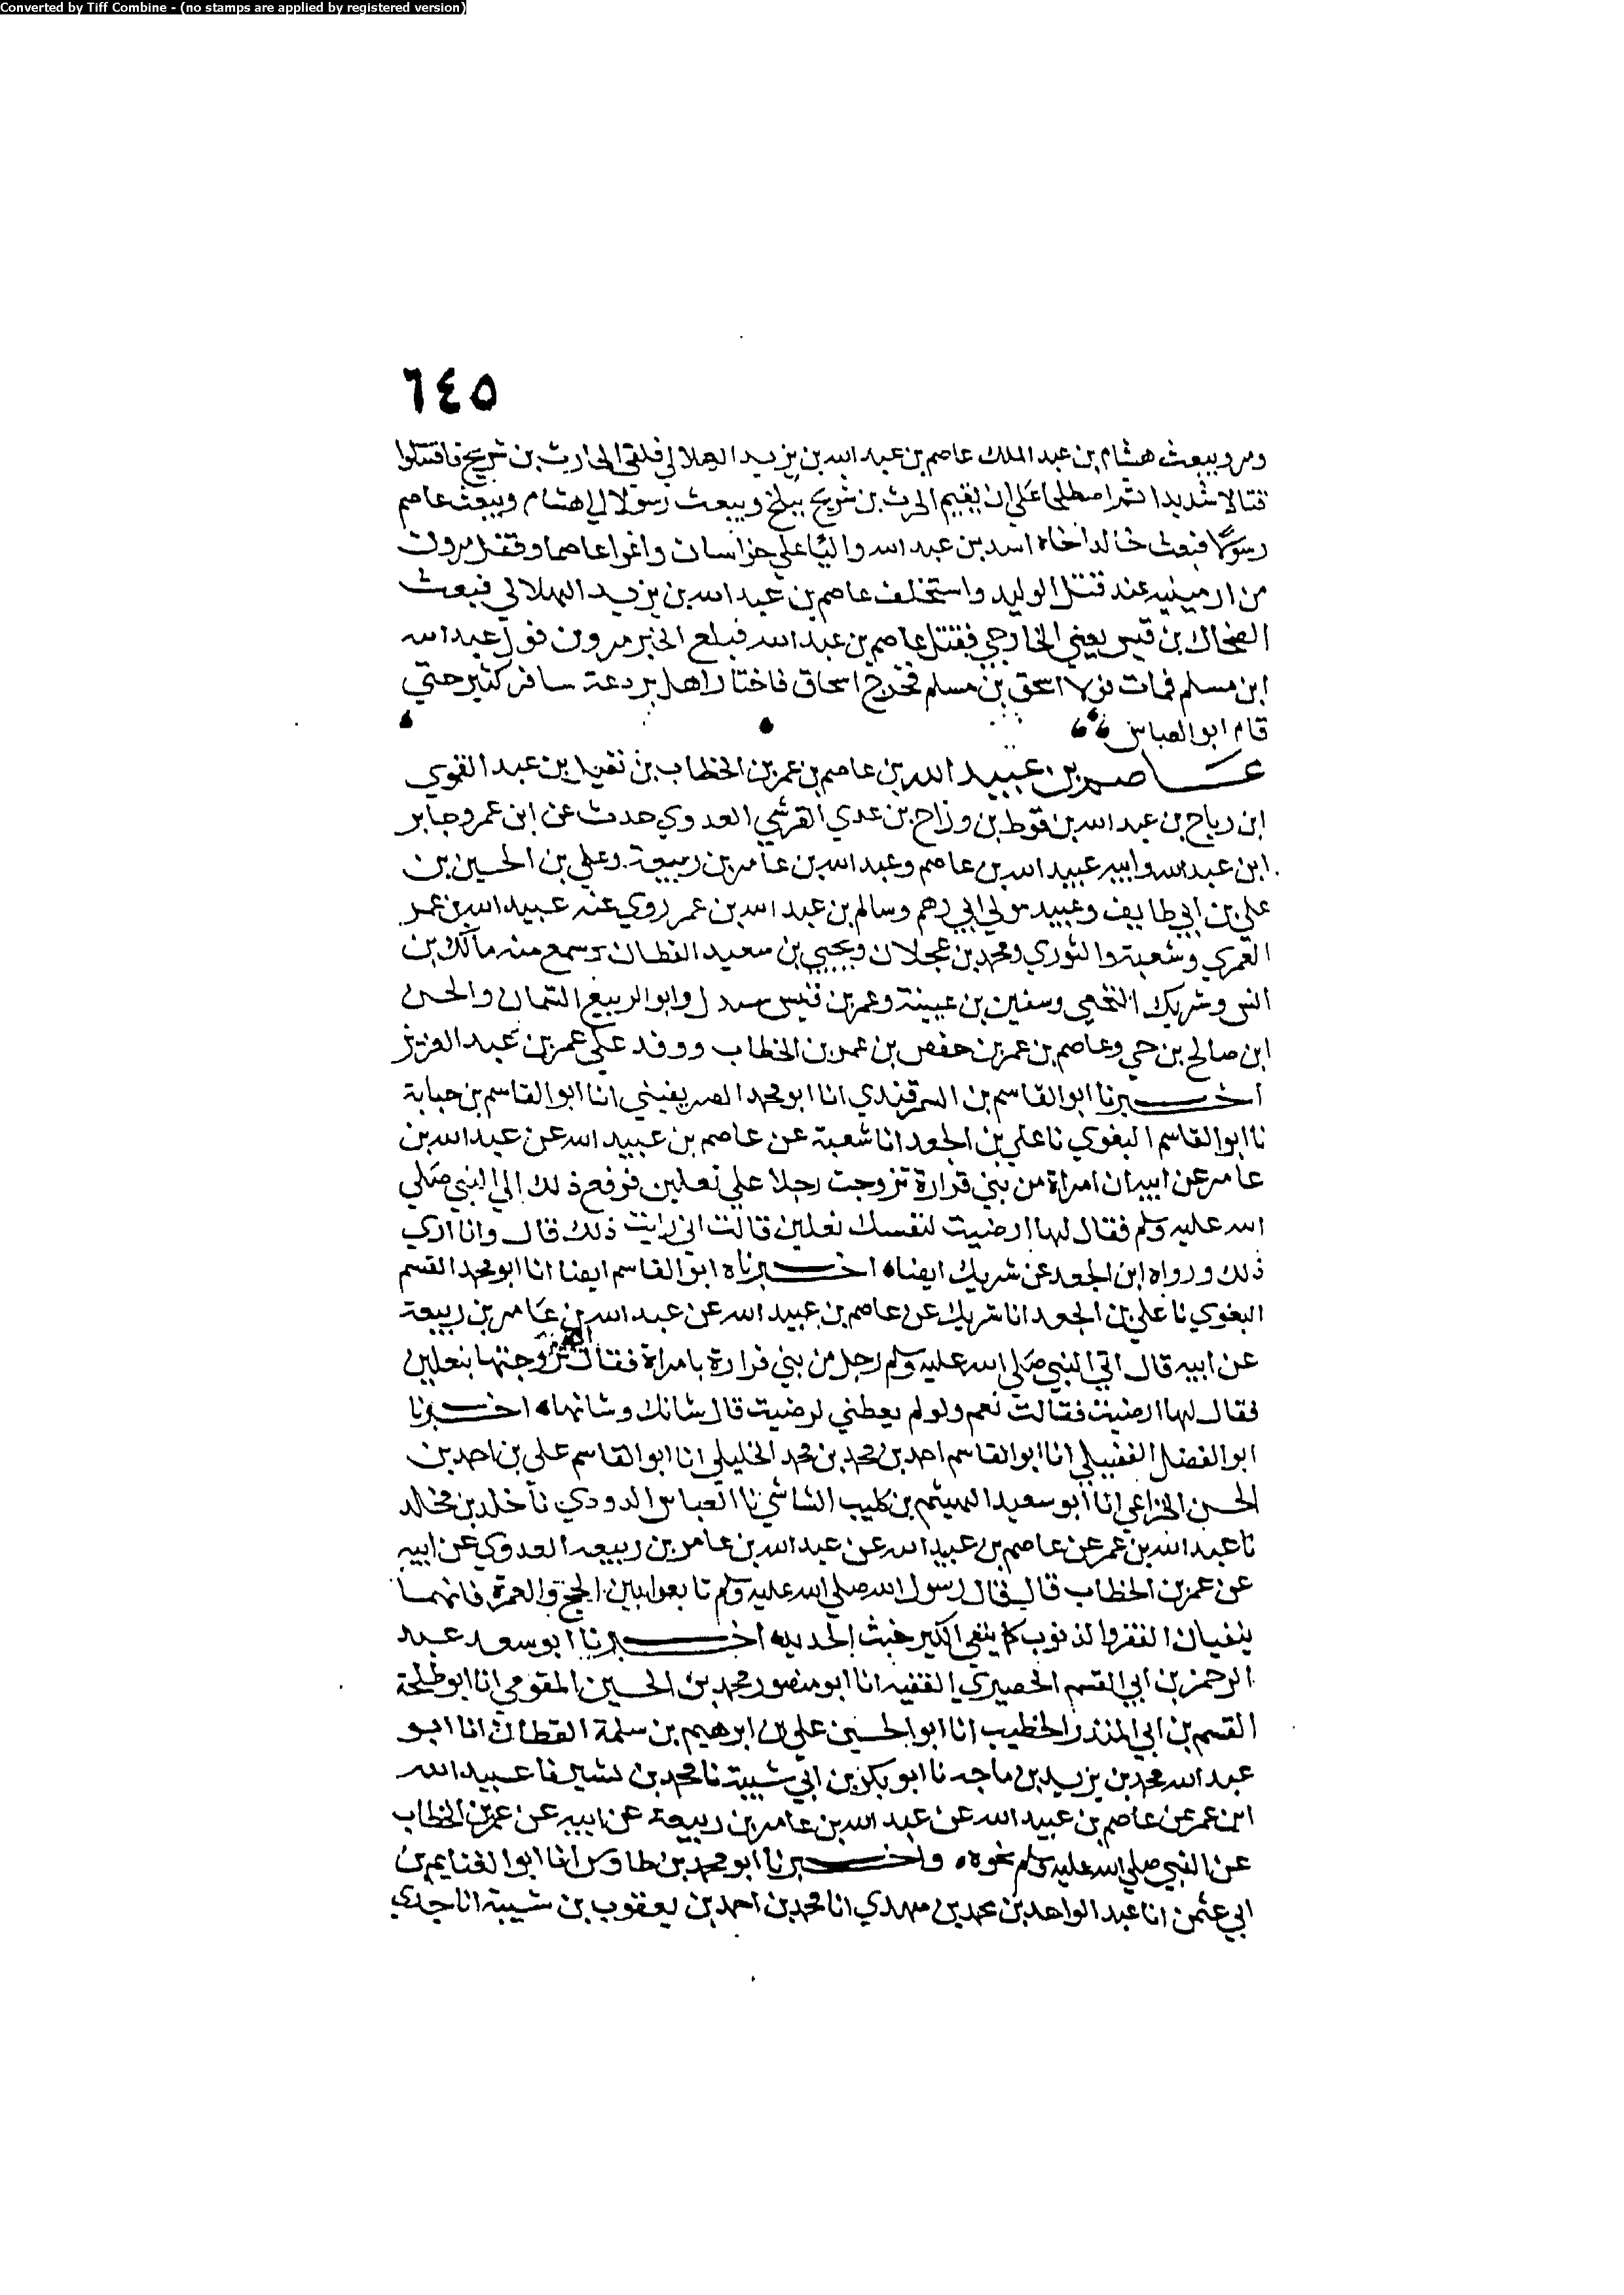 Converted by Tiff Combine - (no stamps are applied by registered version)
٦٤٥
ومرو يبعث هشام بن عبد الملك عاصم بن عبد الله بن يزيد الهلالي فلقي الحارث بن شريح فاقتتلوا
قتالا شديدا ثم اصطلحا علي ان يقيم الحرث بن شريح ببلخ ويبعث رسولا الي هشام ويبعث عاصم
رسولا فبعث خالد اخاه اسد بن عبد الله واليا علي خراسان واغوا عاصما وقفل مرون
من ارمينيه عند قتل الوليد واستخلف عاصم بن عبد الله بن يزيد الهلالي فبعث
الضحاك بن قيس يعني الخارجي فقتل عاصم بن عبد الله فبلغ الخبر مرون فولي عبد الله
ابن مسلم فمات فولا اسحق بن مسلم فخرج اسحاق فاختار اهل بردعة سافر كثير حتي
قام ابو العباس
عاصم بن عبيد الله بن عاصم بن عمر بن الخطاب بن نفيل بن عبد القوي
ابن رياح بن عبد الله بن قوط بن وزاح بن عدي القرشي العدوي حدث عن ابن عمر وجابر
ابن عبد الله وابيه عبيد الله بن عاصم وعبد الله بن عامر بن ربيعة وعلي بن الحسين بن
علي بن ابي طايف وعبيد مولي ابي رهم وسالم بن عبد الله بن عمر روي عنه عبيد الله بن عمر
العمري وشعبة والثوري ومحمد بن عجلان ويحيي بن سعيد القطان وسمع منه مالك بن
انس وشريك النخعي وسفين بن عيينة وعمر بن قيس سندل وابو الربيع السمان والحسن
ابن صالح بن حي وعاصم بن عمر بن حفص بن عمر بن الخطاب ووفد علي عمر بن عبد العزيز
اخبرنا ابو القاسم بن السمرقندي انا ابو محمد الصريفيني انا ابو القاسم بن حبابة
نا ابو القاسم البغوي نا علي بن الجعد انا شعبة عن عاصم بن عبيد الله عن عبد الله بن
عامر عن ابيه ان امراة من بني قرارة تزوجت رجلا علي نعلين فرفع ذلك الي النبي صلي
الله عليه وسلم فقال لها ارضيت لنفسك نعلين قالت اني رايت ذلك قال وانا اري
ذلك ورواه ابن الجعد عن شريك ايضا اخبرناه ابو القاسم ايضا انا ابو محمد القسم
البغوي نا علي بن الجعد انا شريك عن عاصم بن عبيد الله عن عبد الله بن عامر بن ربيعة
عن ابيه قال اتي النبي صلي الله عليه وسلم رجل من بني فرارة بامراة فقال تزوجتها بنعلين
فقال لها ارضيت فقالت نعم ولو لم يعطني لرضيت قال شانك وشانها اخبرنا
ابو الفضل الفضيلي انا ابو القاسم احمد بن محمد بن محمد الخليلي انا ابو القاسم علي بن احمد بن
الحسن الخزاعي انا ابو سعيد الهيثم بن كليب الشاشي نا العباس الدودي نا خلد بن مخالد
نا عبد الله بن عمر عن عاصم بن عبيد الله عن عبد الله بن عامر بن ربيعه العدوي عن ابيه
عن عمر بن الخطاب قال قال رسول الله صلي الله عليه وسلم تابعوا بين الحج والعمرة فانهما
ينفيان الفقر والذنوب كما ينفي الكير خبث الحديد اخبرنا ابو سعد عبد
الرحمن بن ابي القسم الحصيري الفقيه انا ابو منصور محمد بن الحسين المقومي انا ابو طلحة
القسم بن ابي المنذر الخطيب انا ابو الحسين علي بن ابرهيم بن سلمة القطان انا ابو
عبد الله محمد بن يزيد بن ماجه نا ابو بكر بن ابي شيبة نا محمد بن بشير نا عبيد الله
ابن عمر عن عاصم بن عبيد الله عن عبد الله بن عامر بن ربيعة عن ابيه عن عمر بن الخطاب
عن النبي صلي الله عليه وسلم نحوه واخبرنا ابو محمد بن طاوس انا ابو الغنايم بن
ابي عثمن انا عبد الواحد بن محمد بن مهدي انا محمد بن احمد بن يعقوب بن شيبة انا جدي